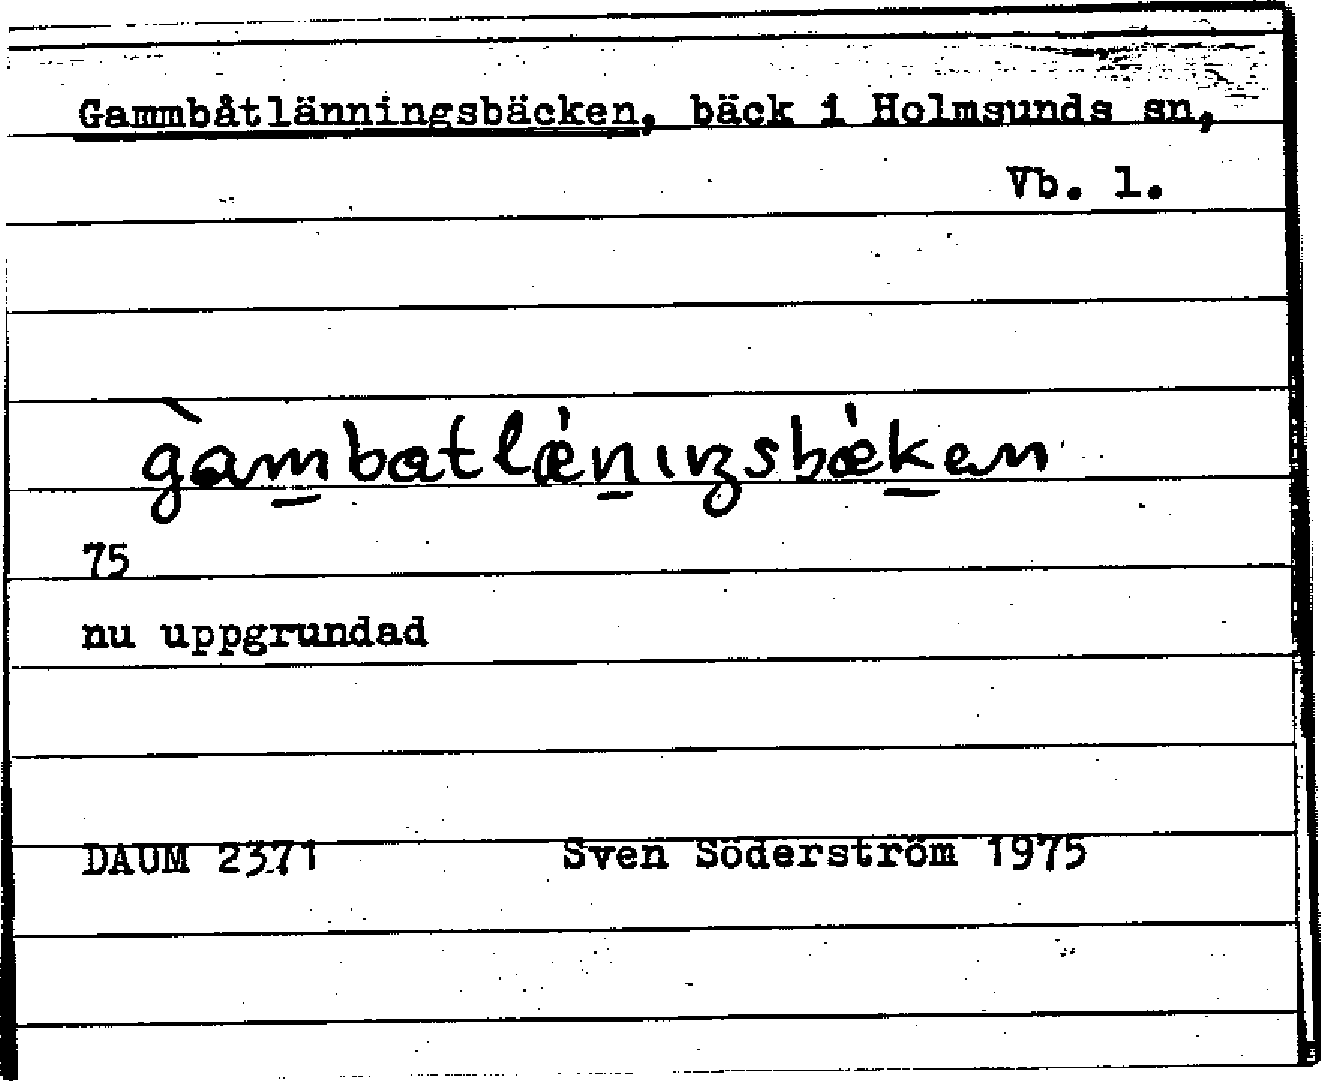 Gammbåtlänningsbäcken, bäck i Holmsunds sn,
Vb. l.
g̀am̲batlǽn̲ıŋsbǽk̲en
75
nu uppgrundad
DAUM 2371 Sven Söderström 1975